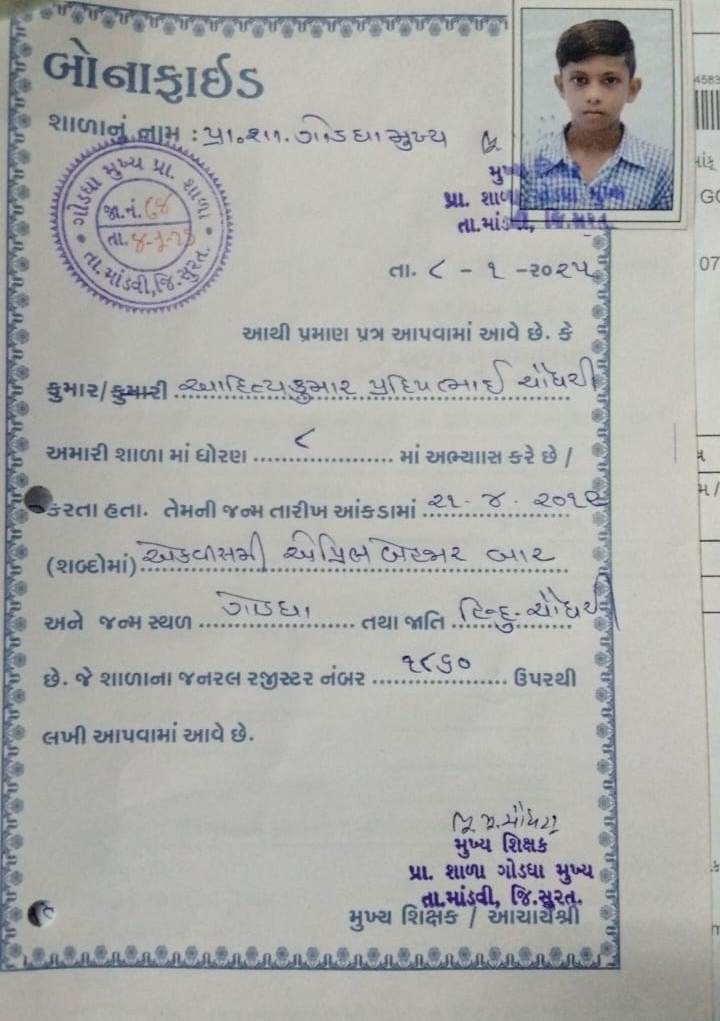 બોનાફાઇડ
શાળાનું નામ : પ્રા.શા. ગોડધા મુખ્ય
મુખ્ય
પ્રા. શાળા ગોડધા મુખ્ય
તા.માંડવી, જિ.સુરત.
ગોડધા મુખ્ય પ્રા. શાળા
જા.નં. ૬૪
તા. ૮-૧-૨૫
તા.માંડવી,જિ.સુરત.
તા. ૮ - ૧ - ૨૦૨૫
આથી પ્રમાણ પત્ર આપવામાં આવે છે. કે
કુમાર/કુમારી આદિત્યકુમાર પ્રદિપભાઈ ચૌધરી
અમારી શાળા માં ધોરણ ૮ માં અભ્યાસ કરે છે /
કરતા હતા. તેમની જન્મ તારીખ આંકડામાં ૨૧-૪-૨૦૧૨
(શબ્દોમાં) એકવીસમી એપ્રિલ બેહજાર બાર
અને જન્મ સ્થળ ગોડધા તથા જાતિ હિન્દુ-ચૌધરી
છે. જે શાળાના જનરલ રજીસ્ટર નંબર ૧૮૬૦ ઉપરથી
લખી આપવામાં આવે છે.
મુખ્ય શિક્ષક
પ્રા. શાળા ગોડધા મુખ્ય
તા.માંડવી, જિ.સુરત.
મુખ્ય શિક્ષક / આચાર્યશ્રી
4583
07